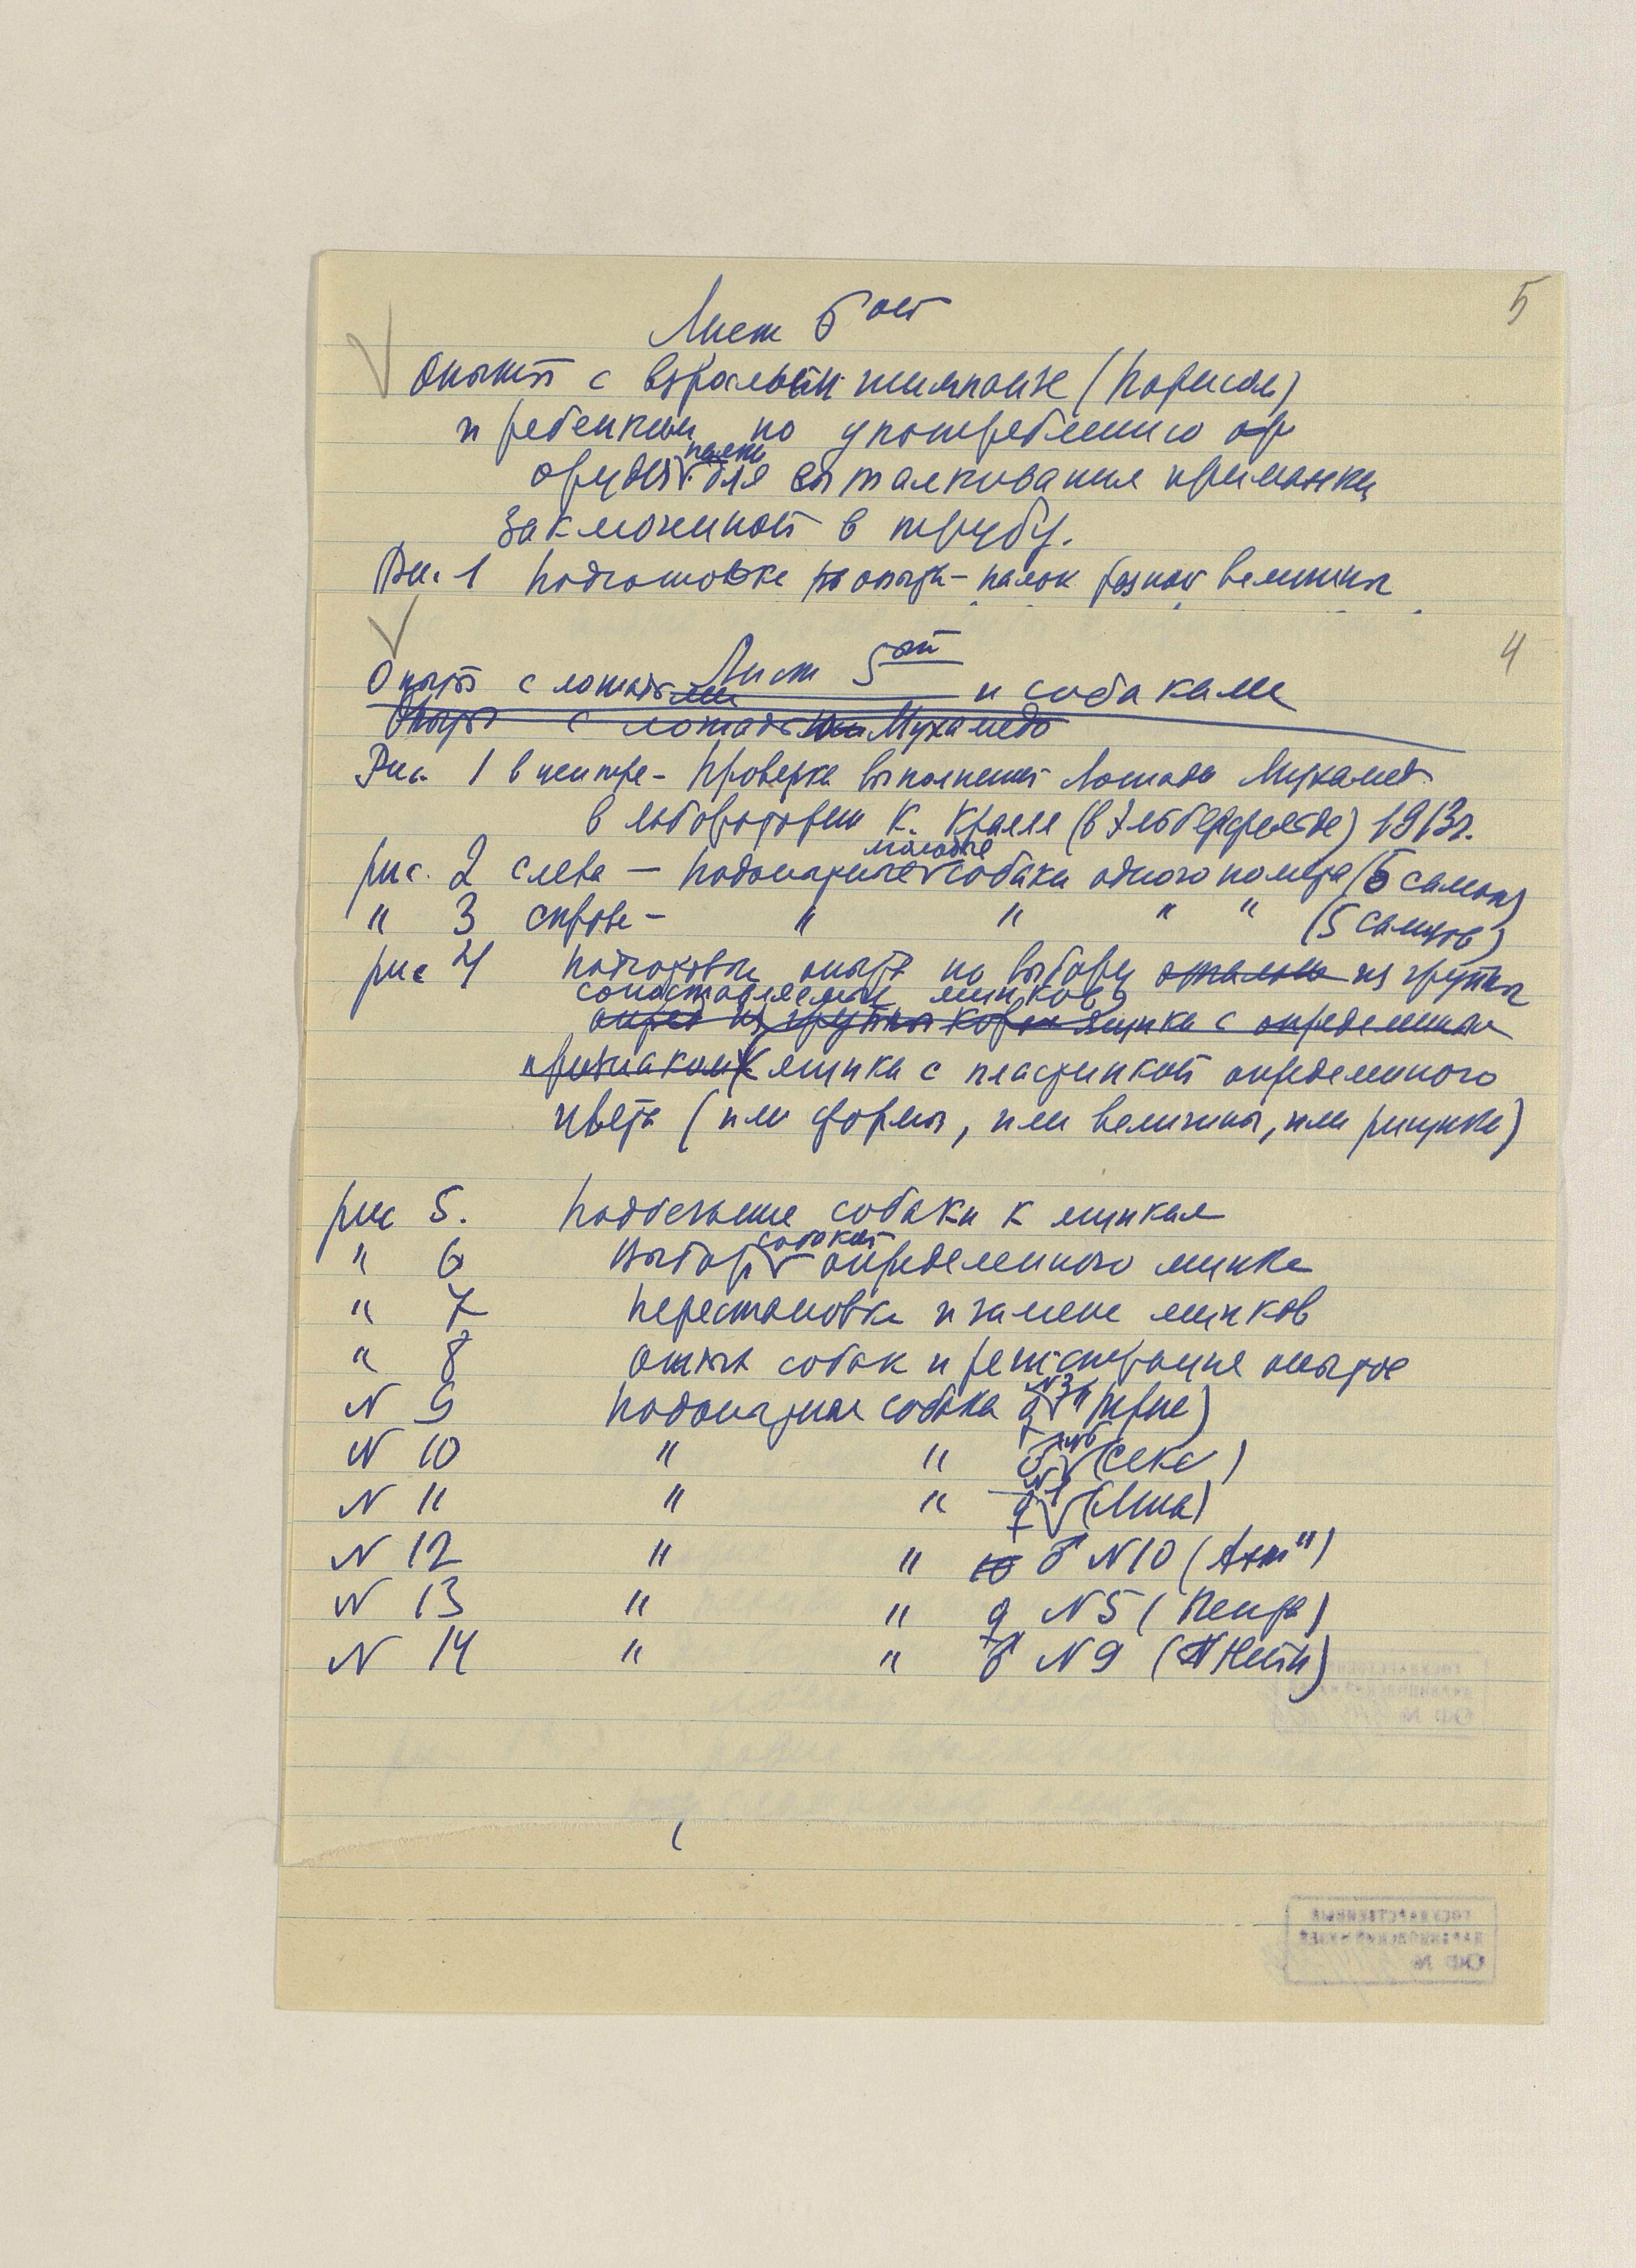 5
Лист 6ой
Опыты с взрослым шимпанзе (Парисом)
и ребенком по употреблению ор
палки
орудия для выталкивания приманки
заключенной в трубу.
Рис. 1 Подготовка опыта - палок разной величины
4
Лист 5ый
Опыты с лошадьми и собаками
Опыты с лошадьми Мухамедо
Рис. 1 в центре - Проверка выполнения лошади Мухамед
в лаборатории К. Кралля (в Эльберфельде) 1913г.
молодые
рис. 2 слева — Подопытные собаки одного помета (5 самок)
" 3 справа - " " " " (5 самцов)
рис 4 подготовка опыта по выбору из группы
сопоставляемых ящиков
опред из группы ящика с определенным
признаком ящика с пластинкой определенного
цвета (или формы, или величины, или рисунка)
рис 5. Подбегание собаки к ящикам
собакой
" 6 Выбор определенного ящика
" 7 Перестановка и замена ящиков
" 8 Отдых собак и регистрация опытов
N 3
N 9 Подопытная собака ♀ )
N6
N 10 " " ♂ )
N 1
N 11 " " ♀ )
N 12 " " 10 ♂ N 10 )
N 13 " " ♀ N 5 )
N 14 " " ♂ N 9 )
ГОСУДАРСТВЕННЫЙ
ДАРВИНОВСКИЙ МУЗЕЙ
ОКР №